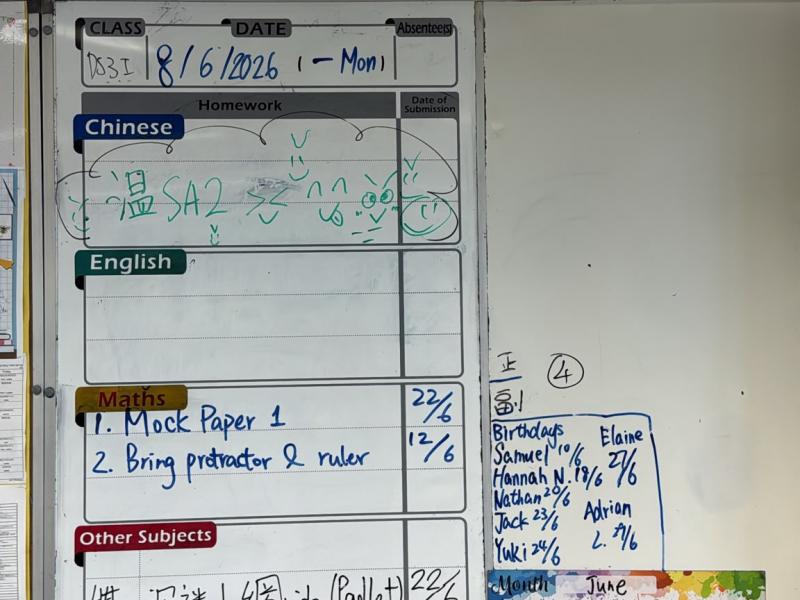 CLASS DATE Absentee(s)
DS3I 8/6/2026 (一 Mon)
Homework Date of Submission
Chinese
温 SA2
English
Maths
1. Mock Paper 1 22/6
2. Bring protractor & ruler 12/6
Other Subjects
(Padlet) 22/6
正 ④
副
Birthdays
Samuel 10/6
Hannah N. 18/6
Nathan 20/6
Jack 23/6
Yuki 24/6
Elaine 27/6
Adrian L. 29/6
Month June